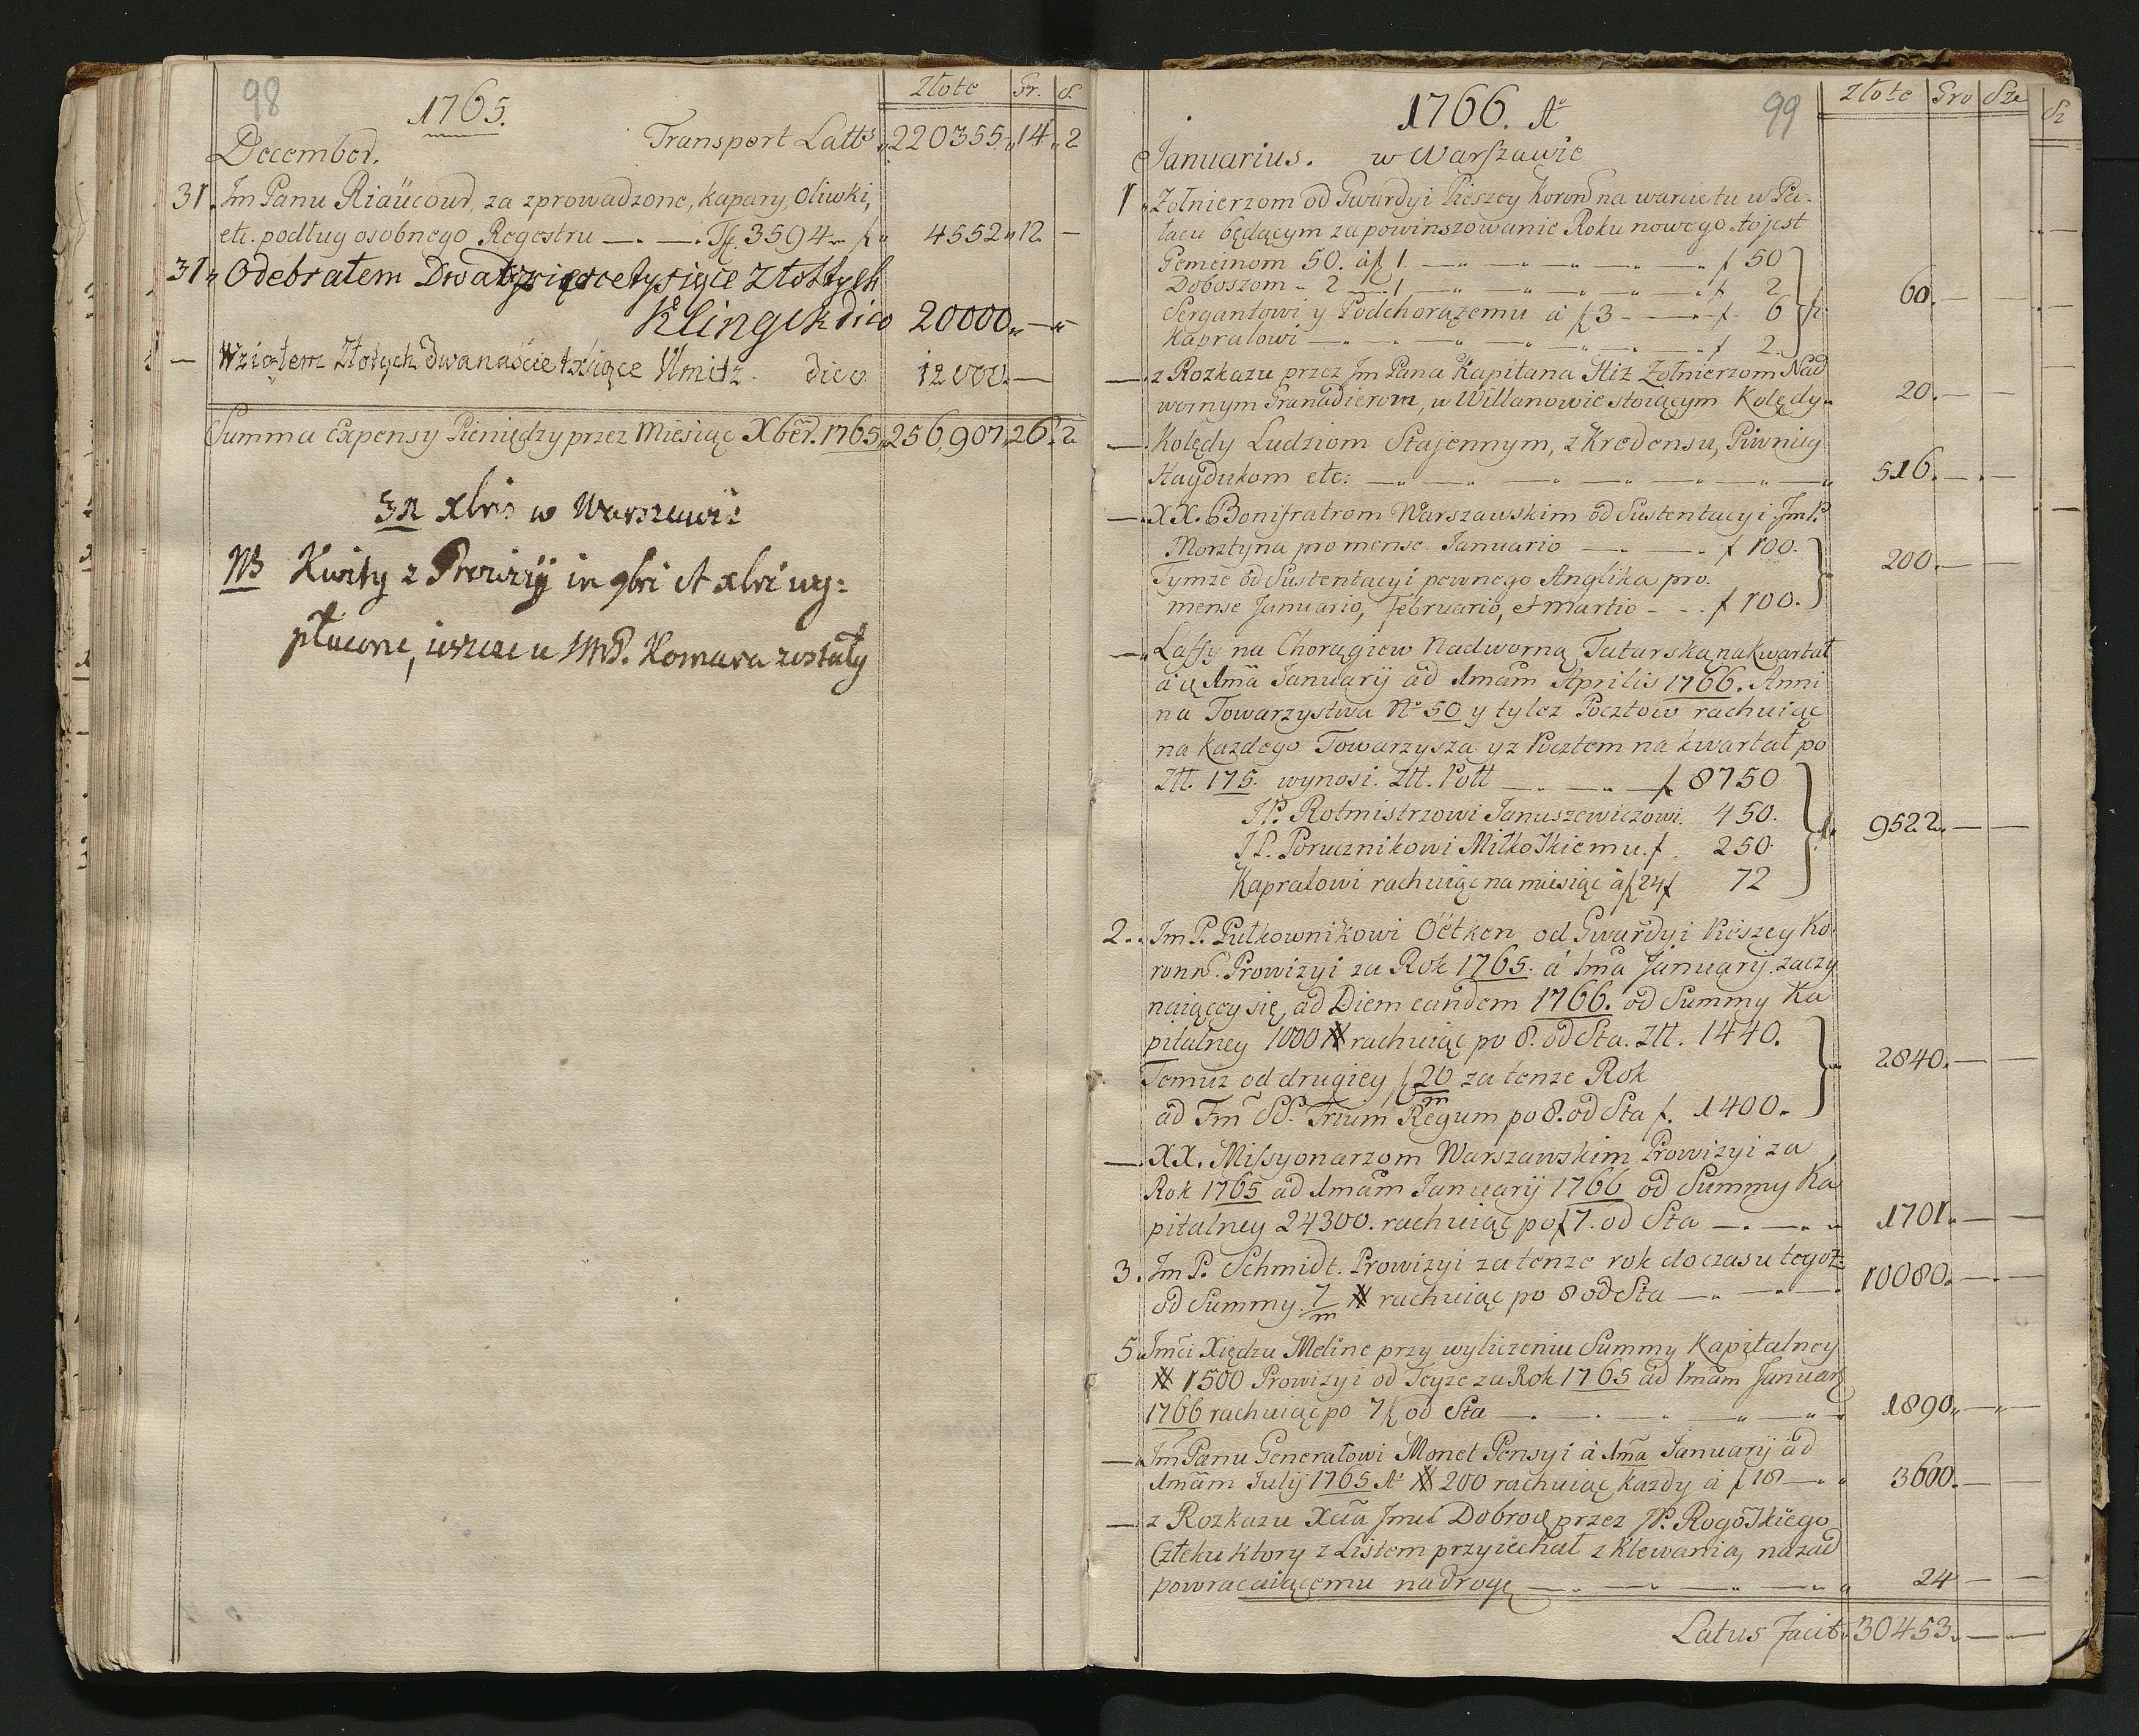 98
1765.
Złote Gr. S.
December. Transport Latts 220355. 14. 2
31. Jm Panu Riaücour, za zprowadzone, kapary, Oliwki,
etc. podług osobnego Regestru — . — . Tf. 3594 — f 4552 12. —
31. Odebrałem Dwadziescetysięce złottych
Klingek dico 20000. —
— Wziąłem Złotych dwanaście tysięce Umitz. dico 12000. —
Summa Expensy Pieniędzy przez Miesiąc Xber. 1765. 256,907. 26. 2
31 xbris w Warszawie
NB Kwity z Prowizij in 9bri et xbri wy:
płacone, ieszcze u JMP. Komara zostały
1766. A°
99
Złote Gro Sze
Sz
Januarius. w Warszawie
1. Zołnierzom od Gwardyi Pieszey Koron na warcie tu w Pa-
łacu będącym za powinszowanie Roku nowego to jest
Gemeinom 50. à f 1. — f 50
Doboszom - 2 — 1 — f 2
Sergantowi y Podchorążemu à f 3 - — f 6 60. —
Kapralowi — f 2.
— z Rozkazu przez Jm Pana Kapitana Hiz Zołnierzom Nad
wornym Granadierom, w Willanowie stoiącym Kolędy. 20. —
— Kolędy Ludziom Stajennym, z Kredensu, Piwnicy
Haydukom etc: — 516. —
— XX. Bonifratrom Warszawskim od Sustentacyi Jm P.
Morztyna pro mense Januario — f 100.
Tymze od Sustentacyi pewnego Anglika pro 200. —
mense Januario, Februario, et martio - . . f 100.
— Laffy na Chorągiew Nadworną Tatarską na kwartał
à 1ma Januarij ad 1mam Aprilis 1766. Anni
na Towarzystwa N° 50 y tylez Pocztow rachuiąc
na kazdego Towarzysza y z Pocztem na kwartał po
Złł. 175. wynosi. Złł. Poll — f 8750
JP. Rotmistrzowi Januszewiczowi. 450.
JP. Porucznikowi Miłkoskiemu. f. 250. 9522. —
Kapralowi rachuiąc na miesiąc à f 24 f 72
2. Jm P. Pułkownikowi Oëtken od Gwardyi Pieszey Ko
ronn. Prowizyi za Rok 1765. à 1ma Januarij zaczy
naiącey się, ad Diem eandem 1766. od Summy Ka
pitalney 1000 # rachuiąc po 8. od Sta. Złł. 1440.
Temuz od drugiey f 20/m za tenze Rok 2840. —
ad Fm SS. Trium Regum po 8. od Sta f. 1400.
— XX. Missyonarzom Warszawskim Prowizyi za
Rok 1765 ad 1mam Januarij 1766 od Summy Ka
pitalney 24300. rachuiąc po f 7. od Sta — 1701. —
3. Jm P. Schmidt. Prowizyi za tenze rok do czasu tegoż
od Summy 7/m # rachuiąc po 8 od Sta — 10080. —
5. Jmći Xiędzu Meline przy wyliczeniu Summy Kapitalney
# 1500 Prowizyi od Teyze za Rok 1765 ad 1mam Januar
1766 rachuiąc po 7 f od Sta — 1890. —
— Jm Panu Generałowi Monet Pensyi à 1ma Januarij ad
1mam Julij 1765 A° # 200 rachuiąc kazdy à f 18 — 3600. —
— z Rozkazu Xcia Jmci Dobrod. przez JP. Rogoskiego
Człeku ktory z Listem przyiechał z Klewania, nazad
powracaiącemu na drogę — 24 —
Latus facit 30453. —